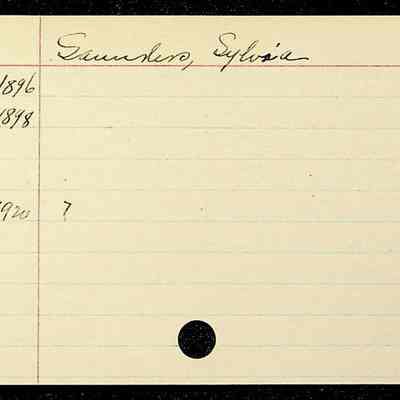 Saunders, Sylvia
1896
1898
1920 7